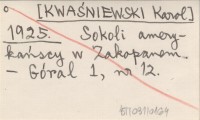 [KWAŚNIEWSKI Karol]
1925. Sokoli amery-
kańscy w Zakopanem.
– Góral 1, nr 12.